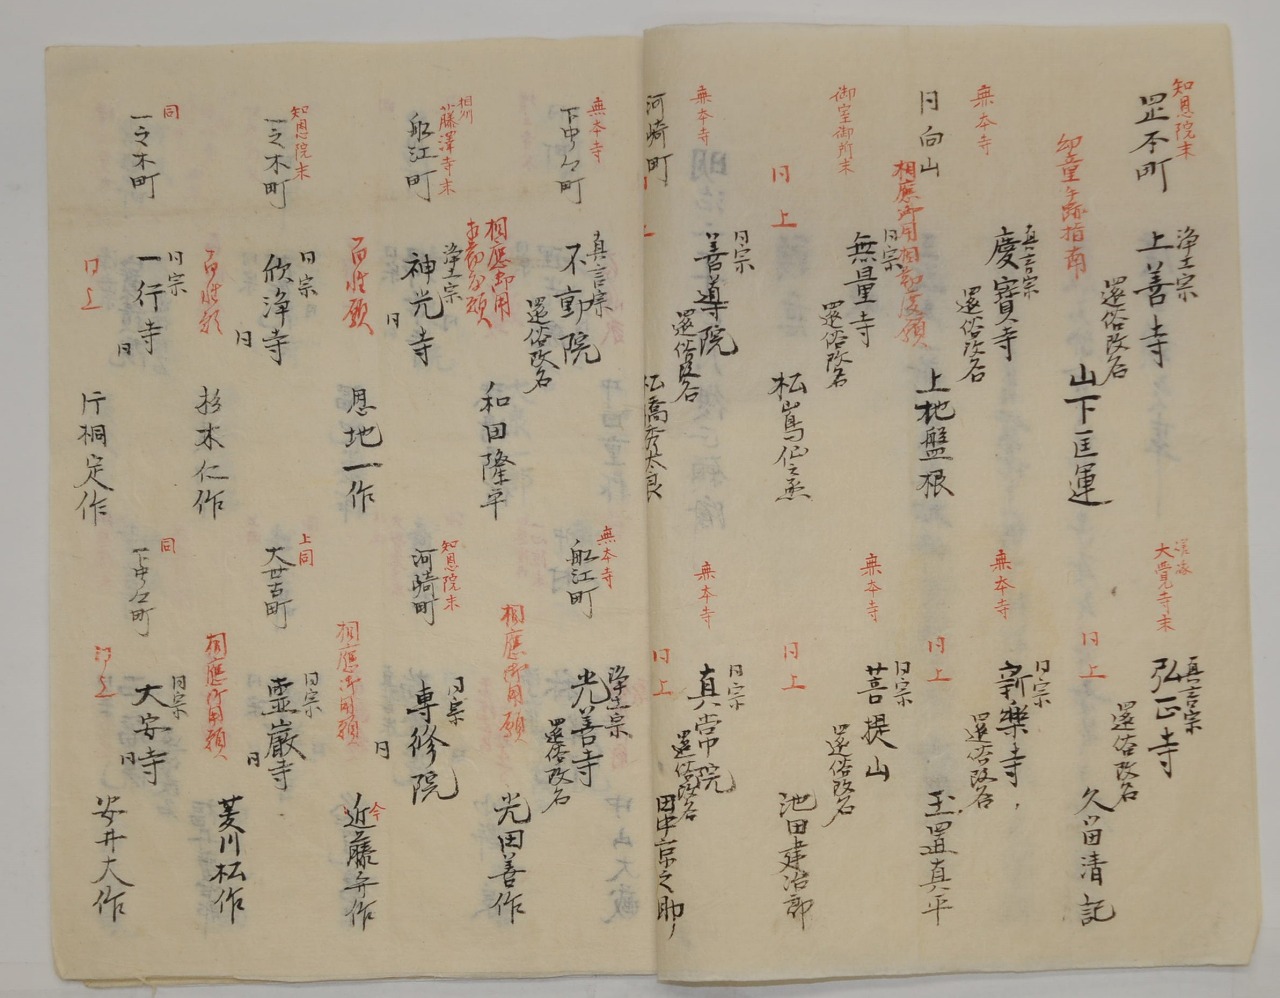 知恩院末
浄土宗
上善寺
還俗改名
山下匡運
幼童手跡指南
無本寺
日向山
真言宗
慶寶寺
還俗改名
上地盤根
御室御所末
日宗
無量寺
還俗改名
日上
無本寺
日宗
善導院
還俗改名
河崎町
大覺寺末
真言宗
弘正寺
還俗改名
久留清記
日上
無本寺
日宗
新樂寺
還俗改名
玉置真平
日上
無本寺
日宗
菩提山
還俗改名
池田建治郎
日上
無本寺
日宗
真常院
還俗改名
田中京之助
日上
無本寺
下中之町
真言宗
不動院
還俗改名
和田隆平
相應御用
相州
藤澤寺末
船江町
浄土宗
神光寺
日
恩地一作
百姓願
知恩院末
一之木町
日宗
欣浄寺
日
杉木仁作
百姓願
同
一之木町
日宗
一行寺
日
片桐定作
日上
無本寺
船江町
浄土宗
光善寺
還俗改名
光田善作
相應御用願
知恩院末
河崎町
日宗
専修院
日
今
近藤弁作
相應御用願
上同
大世古町
日宗
霊巌寺
日
菱川松作
相應御用願
同
下中之町
日宗
大安寺
日
安井大作
日上